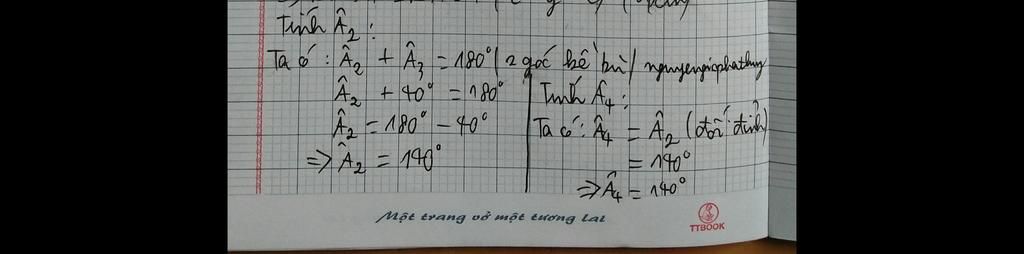 Tính Â₂ :
Ta có : Â₂ + Â₃ = 180° (2 góc kề bù) nguyengiaphathuy
Â₂ + 40° = 180°
Â₂ = 180° - 40°
=> Â₂ = 140°
Tính Â₄ :
Ta có : Â₄ = Â₂ (đối đỉnh)
= 140°
=> Â₄ = 140°
Một trang vở một tương lai
TTBOOK